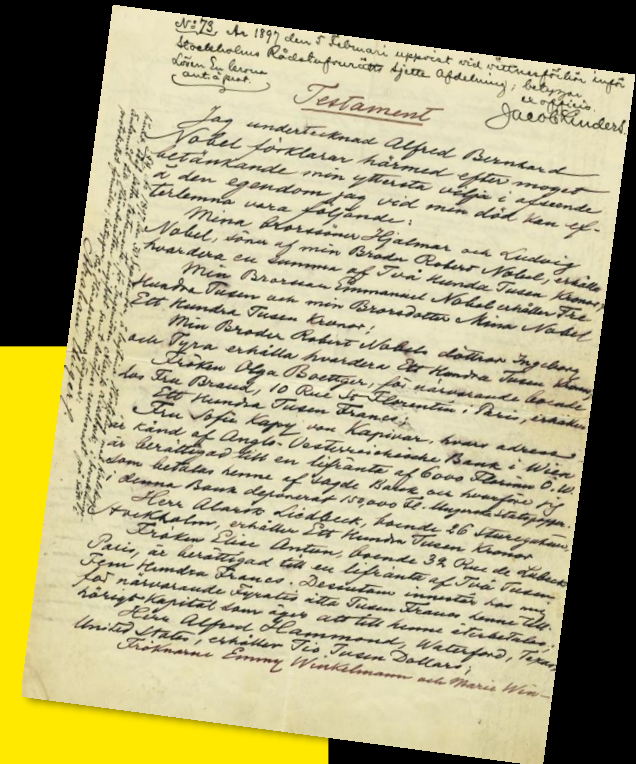 No 73. År 1897 den 5 Februari uppvist vid vittnesförhör inför
Stockholms Rådstufvurätts sjette Afdelning; betygar
Lösen En krona ex officio.
Jacob Anders
Testament
Jag undertecknad Alfred Bernhard
Nobel förklarar härmed efter moget
betänkande min yttersta vilja i afseende
å den egendom jag vid min död kan ef-
terlemna vara följande:
Mina brorssöner Hjalmar och Ludvig
Nobel, söner af min Broder Robert Nobel, erhålla
hvardera en summa af Två Hundra Tusen Kronor;
Min Brorsson Emmanuel Nobel erhåller Tre
Hundra Tusen och min Brorsdotter Mina Nobel
Ett Hundra Tusen Kronor;
Min Broder Robert Nobels döttrar Ingeborg
och Tyra erhålla hvardera Ett Hundra Tusen Kronor;
Fröken Olga Boettger, för närvarande boende
hos Fru Brand, 10 Rue St Florentin i Paris, erhåller
Ett Hundra Tusen Francs;
Fru Sofie Kapy von Kapivar, hvars adress
är känd af Anglo-Oesterreichische Bank i Wien
är berättigad till en lifränta af 6000 Florins Ö.W.
som betalas henne af sagde Bank och hvarför jag
i denna Bank deponerat 150,000 Fl. i Ungerska Statspapper.
Herr Alarik Liedbeck, boende 26 Sturegatan,
Stockholm, erhåller Ett Hundra Tusen Kronor
Fröken Elise Antun, boende 32 Rue de Lubeck
Paris, är berättigad till en lifränta af Två Tusen
Fem Hundra Francs. Dessutom innestår hos mig
för närvarande Fyratio åtta Tusen Francs henne till-
hörigt Kapital som äger att till henne återbetalas;
Herr Alfred Hammond, Waterford, Texas,
United States, erhåller Tio Tusen Dollars;
Fröknarne Emmy Winkelmann och Marie Win-